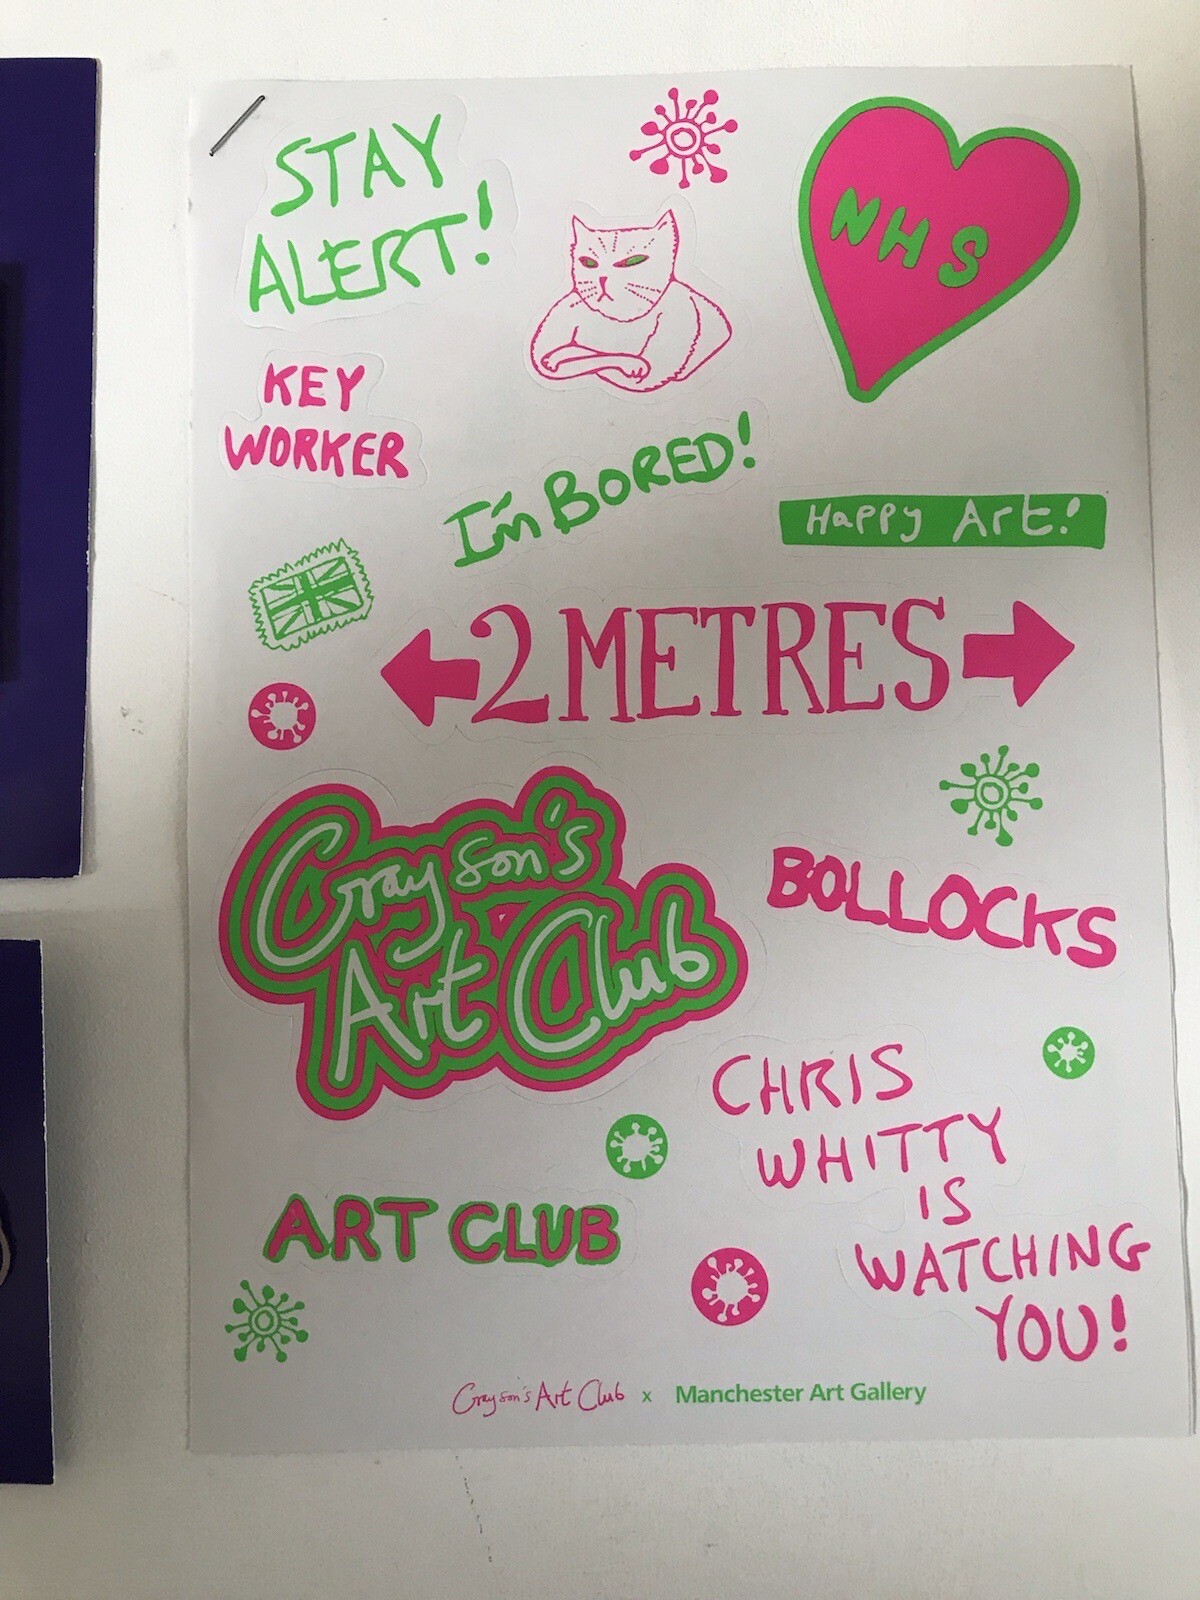 STAY
ALERT!
NHS
KEY
WORKER
I'm BORED!
Happy Art!
2 METRES
Grayson's
Art Club
BOLLOCKS
CHRIS
WHITTY
IS
WATCHING
YOU!
ART CLUB
Grayson's Art Club x Manchester Art Gallery